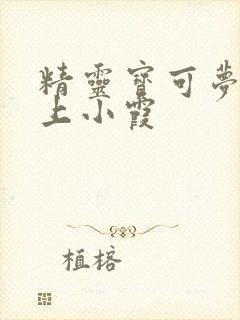 精靈寶可夢
上小霞
植榕